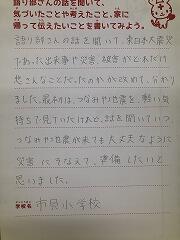 語り部さんの話を聞いて、
気づいたことや考えたこと、家に
帰って伝えたいことを書いてみよう。
語り部さんの話を聞いて、東日本大震災
であった出来事や災害、被害がどれだけ
悲さんなことだったのかが改めて、分かり
ました。最初は、つなみや地震を、軽い気
持ちで見ていたけれど、話を聞いていつ
つなみや地震が来ても大丈夫なように
災害にそなえて、準備したいと
思いました。
学校名 市貝小学校